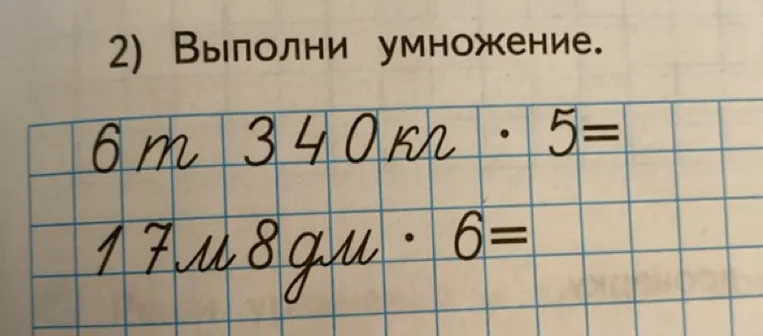 2) Выполни умножение.
6 т 340 кг · 5=
17м 8дм · 6=